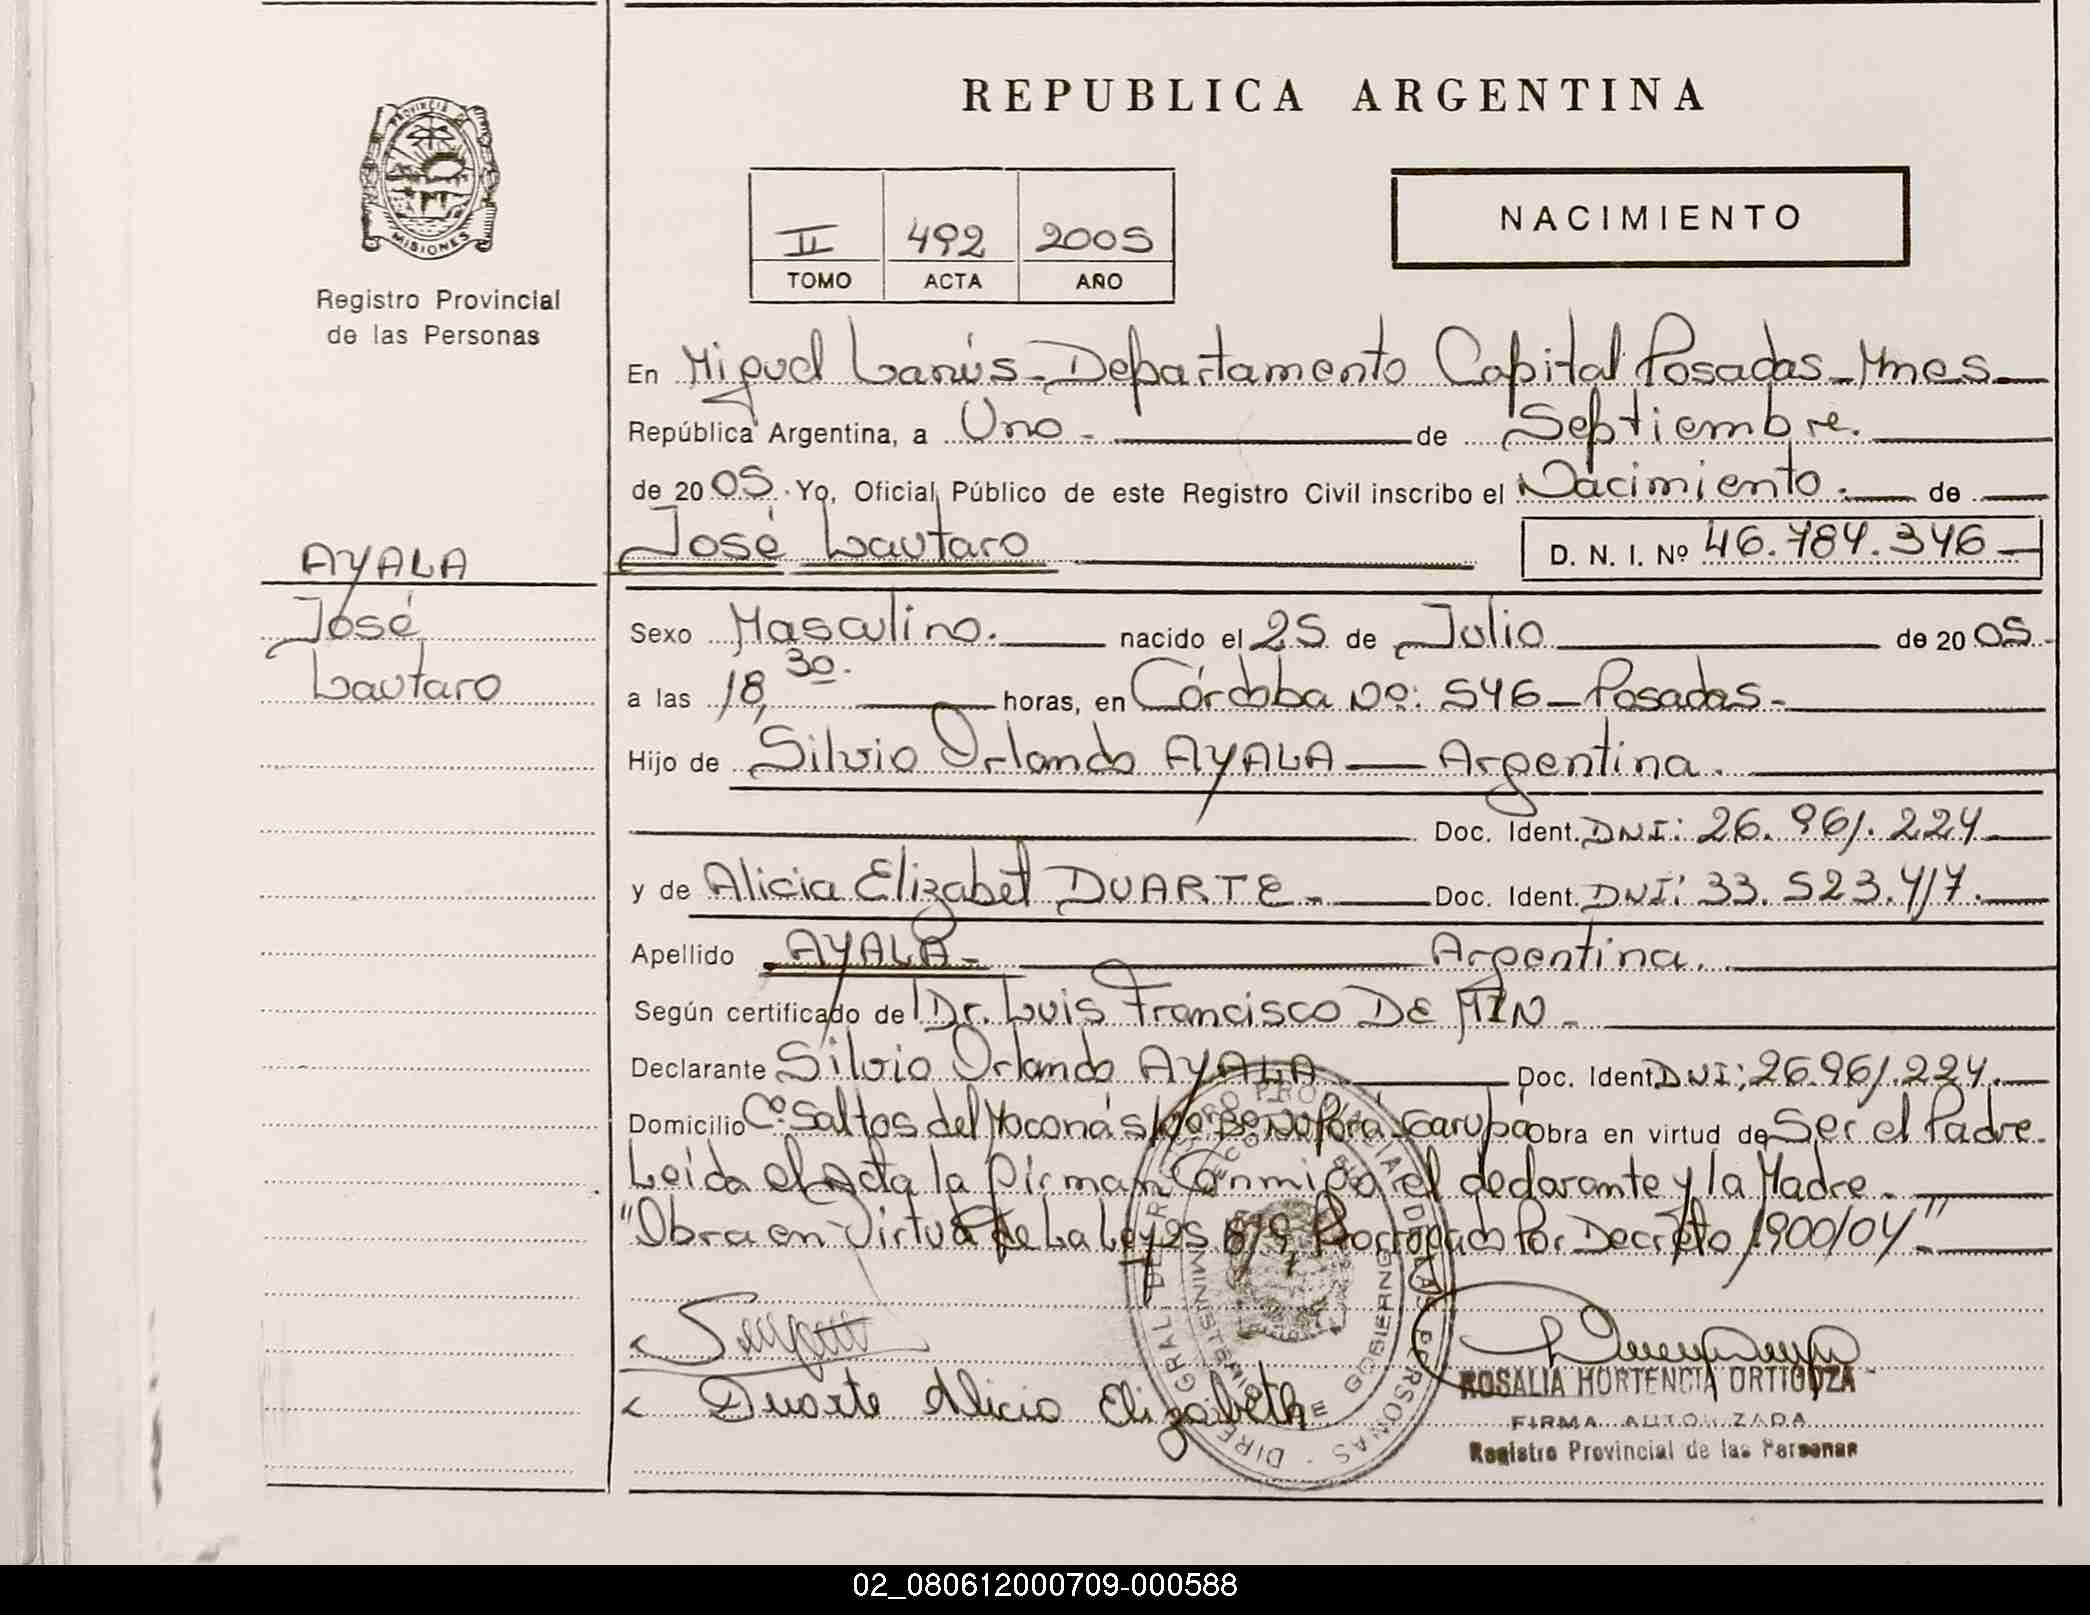 REPUBLICA ARGENTINA
PROVINCIA DE
MISIONES
Registro Provincial
de las Personas
II 492 2005
TOMO ACTA AÑO
NACIMIENTO
En Miguel Lanús-Departamento Capital Posadas-Mnes-
República Argentina, a Uno - de Septiembre.
de 2005. Yo, Oficial Público de este Registro Civil inscribo el Nacimiento. de
José Lautaro
D. N. I. Nº 46.784.346
AYALA
José
Lautaro
Sexo Masculino. nacido el 25 de Julio de 2005.
a las 18,30. horas, en Córdoba Nº: 546-Posadas-
Hijo de Silvio Orlando AYALA - Argentina.
Doc. Ident. DNI: 26.961.224
y de Alicia Elizabet DUARTE.- Doc. Ident. DNI: 33.523.417.
Apellido AYALA- Argentina.
Según certificado de Dr. Luis Francisco DE MIN-
Declarante Silvio Orlando AYALA Doc. Ident. DNI: 26.961.224.
Domicilio Cº Saltos del Moconá Garupá obra en virtud de Ser el Padre.
Leida el Acta la firman Conmigo el declarante y la Madre.
"Obra en Virtud de La Ley Prorrogado Por Decreto 1900/04".
Duarte Alicia Elizabeth
ROSALIA HORTENCIA ORTIGOZA
FIRMA AUTORIZADA
Registro Provincial de las Personas
DIRE GRAL DEL REGISTRO PROVINCIAL DE LAS PERSONAS
MINISTERIO GOBIERNO
02_080612000709-000588